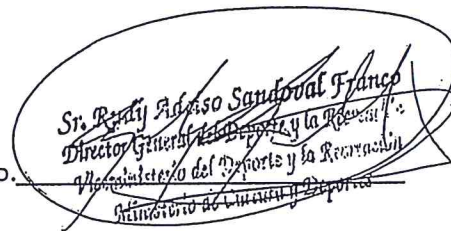 Sr. Rudy Adolso Sandoval Franco
Director General del Deporte y la Recreación
o. Viceministerio del Deporte y la Recreación
Ministerio de Cultura y Deportes